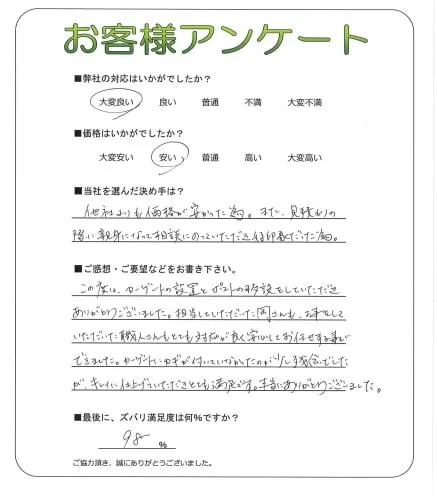 お客様アンケート
■弊社の対応はいかがでしたか？
大変良い 良い 普通 不満 大変不満
■価格はいかがでしたか？
大変安い 安い 普通 高い 大変高い
■当社を選んだ決め手は？
他社よりも価格が安かった為。また、見積もりの
際に親身になって相談にのっていただき好印象だった為。
■ご感想・ご要望などをお書き下さい。
この度は、カーゲートの設置とポストの移設をしていただき
ありがとうございました。担当していただいた岡さんも、工事をして
いただいた職人さんもとても対応が良く安心してお任せする事が
できました。カーゲートにカギが付いていなかったのが少し残念でした
が、キレイに仕上げていただきとても満足です。本当にありがとうございました。
■最後に、ズバリ満足度は何%ですか？
98 %
ご協力頂き、誠にありがとうございました。